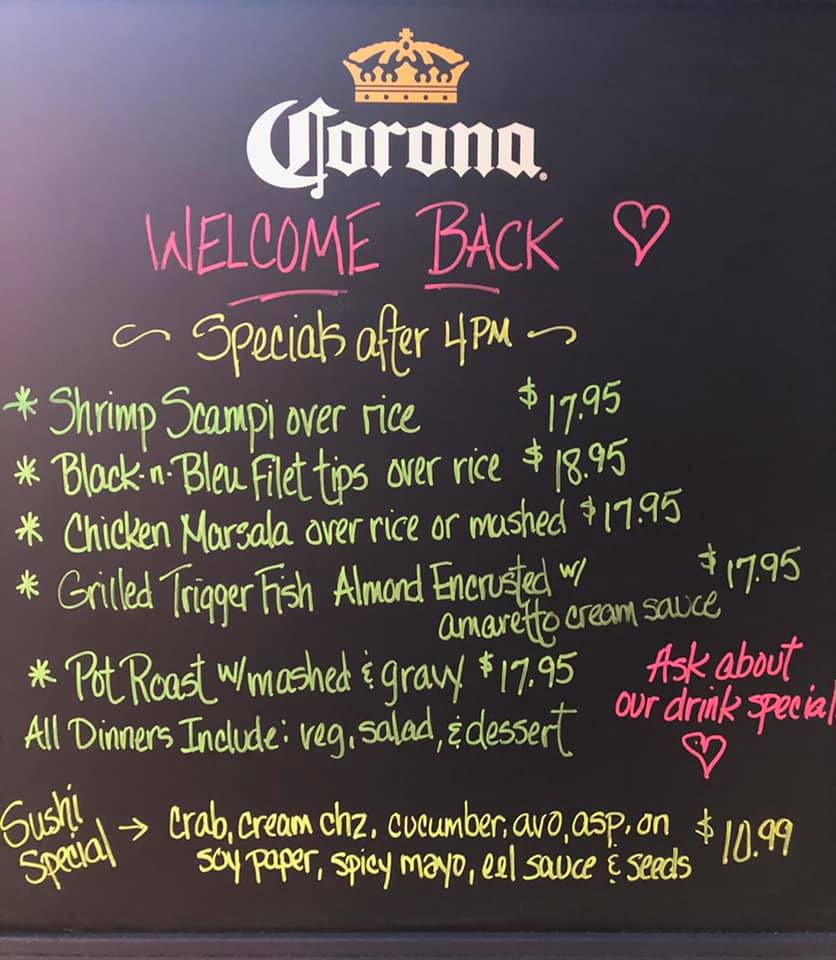 Corona®
WELCOME BACK
Specials after 4PM
* Shrimp Scampi over rice $17.95
* Black-n-Bleu Filet tips over rice $18.95
* Chicken Marsala over rice or mashed $17.95
* Grilled Trigger Fish Almond Encrusted w/ $17.95
amaretto cream sauce
* Pot Roast w/mashed & gravy $17.95
All Dinners Include: veg, salad, & dessert
Ask about
our drink special
Sushi
Special → crab, cream chz, cucumber, avo, asp. on $10.99
soy paper, spicy mayo, eel sauce & seeds